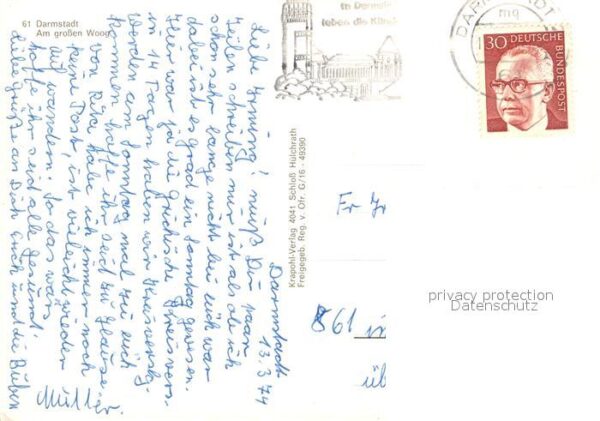 61 Darmstadt
Am großen Woog
Darmstadt
13.3.74
Liebe Irming! muß Dir paar
Zeilen schreiben mir ist als ob ich
schon sehr lange nicht bei euch war
dabei ist es grad ein Sonntag gewesen.
Hier war ja die
in 14 Tagen haben wir
werden am Sonntag mal zu euch
kommen hoffe ihr seid zu Hause
von habe ich immer noch
keine Post, ist vieleicht wieder
auf wandern. So das wars
hoffe ihr seid alle gesund.
viele Grüße an Dich euch und die Buben
Müller.
Krapohl-Verlag 4041 Schloß Hülchrath
Freigegeb. Reg. v. Ofr. G/16 - 49390
in Darmsta
leben die Künst
DARMSTADT
mq
30 DEUTSCHE
BUNDESPOST
Fr
861
üb
privacy protection
Datenschutz